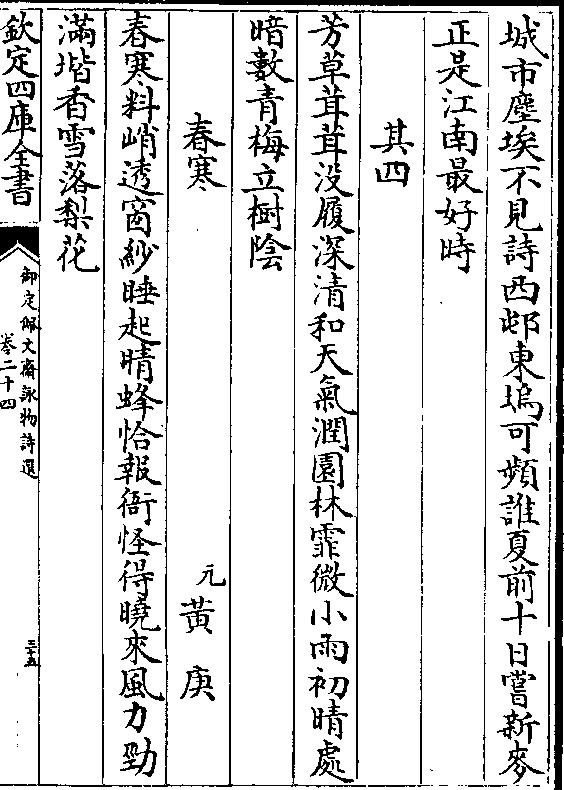 城市塵埃不見詩西邨東塢可頻誰夏前十日嘗新麥
正是江南最好時
其四
芳草茸茸没履深清和天氣潤園林霏微小雨初晴處
暗數青梅立樹陰
春寒
元黃庚
春寒料峭透窗紗睡起晴蜂恰報衙怪得曉來風力勁
滿堦香雪落梨花
欽定四庫全書
御定佩文齋詠物詩選
卷二十四
三十五